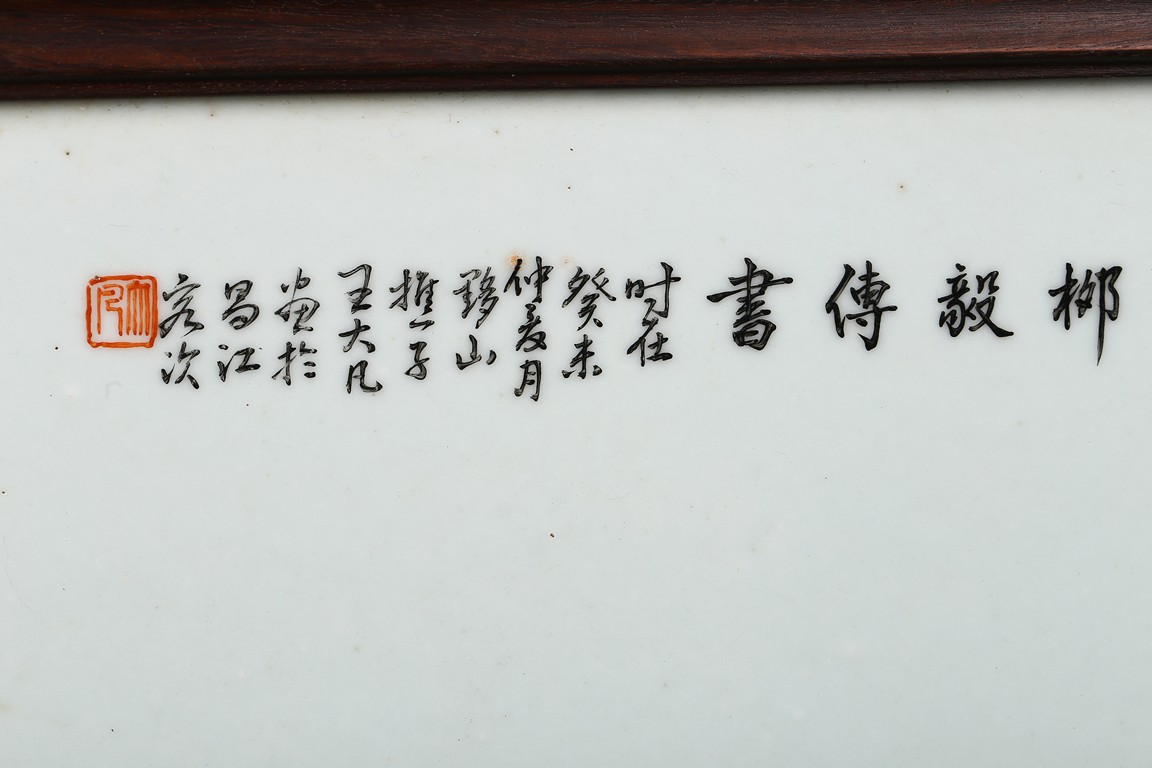 柳毅傳書
时在
癸未
仲夏月
黟山
樵子
王大凡
画於
昌江
客次
大凡